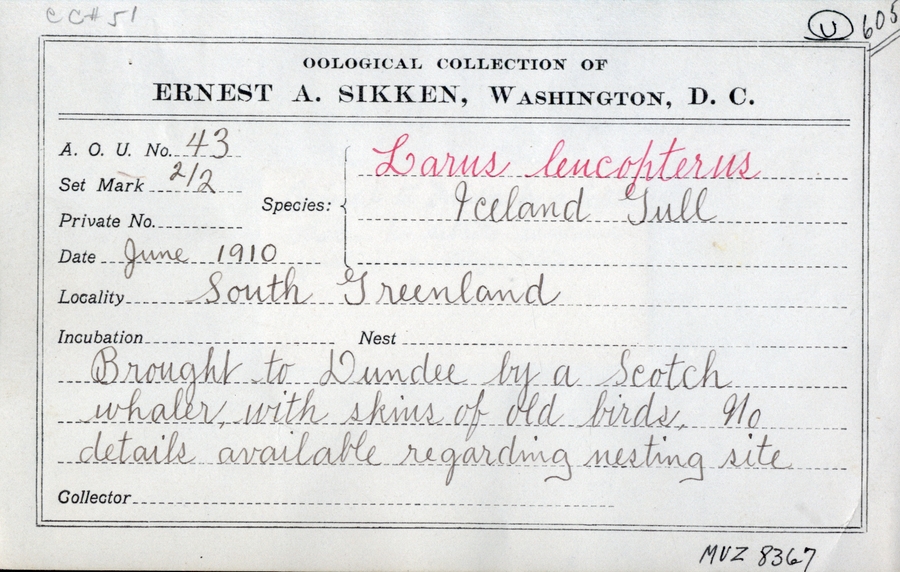 CC# 51
U 605
OOLOGICAL COLLECTION OF
ERNEST A. SIKKEN, WASHINGTON, D. C.
A. O. U. No. 43
Set Mark 2/2
Private No.
Species: Larus leucopterus
Iceland Gull
Date June 1910
Locality South Greenland
Incubation Nest
Brought to Dundee by a Scotch
whaler, with skins of old birds. No
details available regarding nesting site
Collector
MVZ 8367